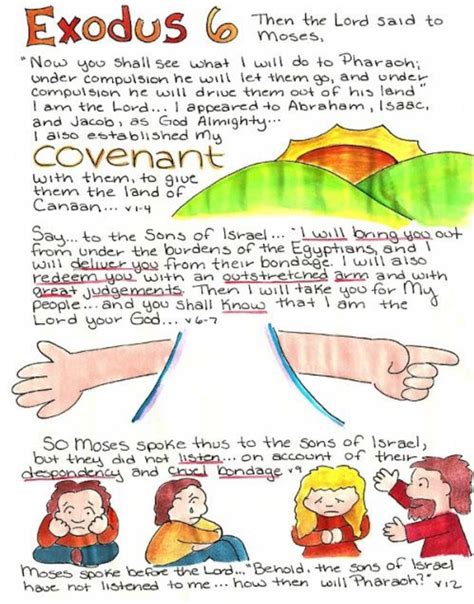 Exodus 6 Then the Lord said to
Moses,
"Now you shall see what I will do to Pharaoh;
under compulsion he will let them go, and under
compulsion he will drive them out of his land"
I am the Lord... I appeared to Abraham, Isaac,
and Jacob, as God Almighty...
I also established My
Covenant
with them, to give
them the land of
Canaan... v1-4
Say... to the Sons of Israel... "I will bring you out
from under the burdens of the Egyptians, and I
will deliver you from their bondage. I will also
redeem you with an outstretched arm and with
great judgements. Then I will take you for My
people... and you shall know that I am the
Lord your God... v6-7
So Moses spoke thus to the sons of Israel,
but they did not listen... on account of their
despondency and cruel bondage v9
Moses spoke before the Lord... "Behold, the sons of Israel
have not listened to me... how then will Pharaoh?" v12